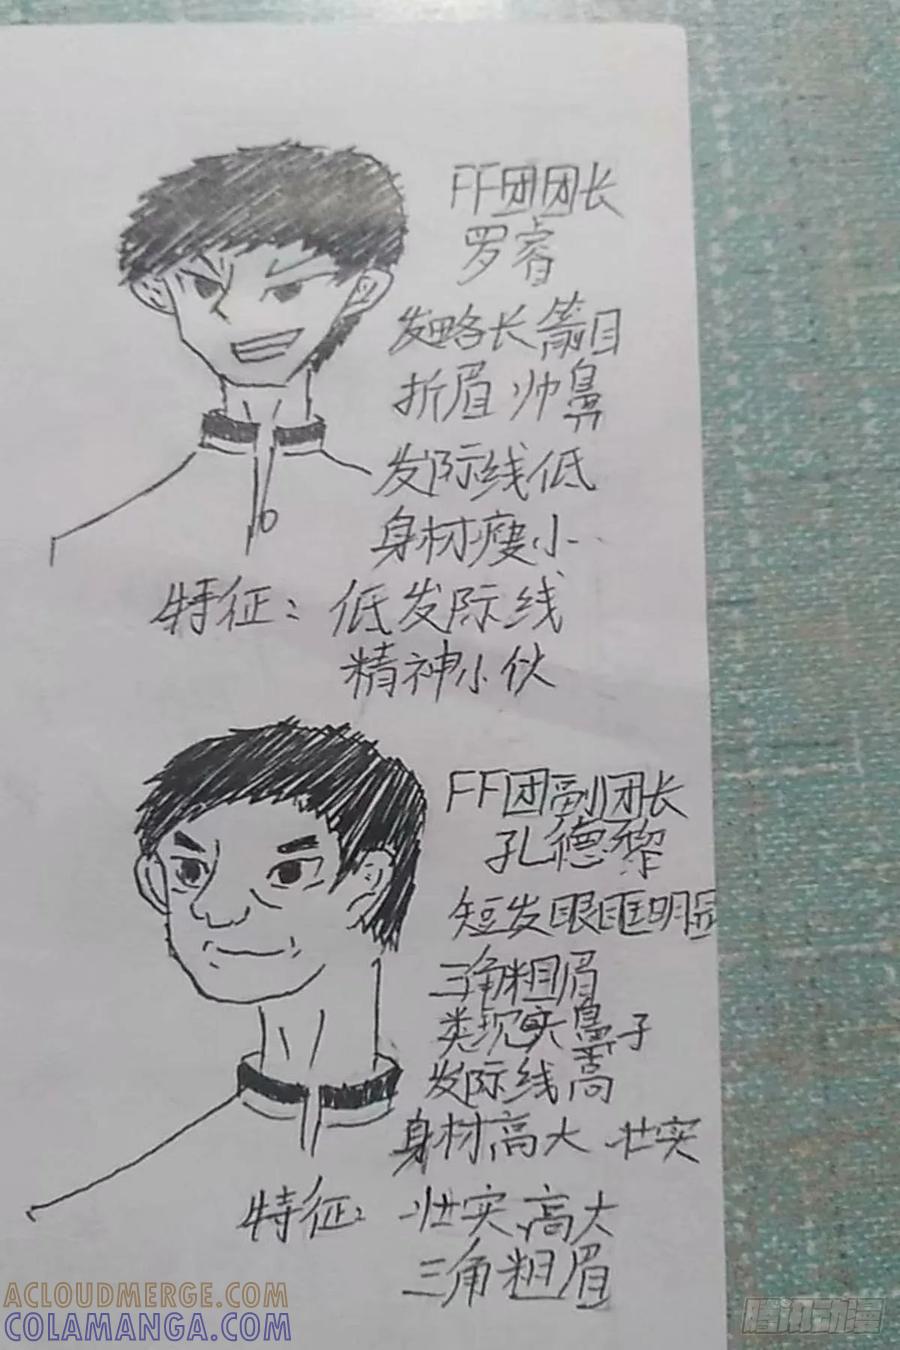 FF团团长
罗睿
发略长 箭目
折眉 帅鼻
发际线低
身材瘦小
特征：低发际线
精神小伙
FF团副团长
孔德黎
短发眼眶明显
三角粗眉
类现实鼻子
发际线高
身材高大 壮实
特征：壮实、高大
三角粗眉
ACLOUDMERGE.COM
COLAMANGA.COM
腾讯动漫